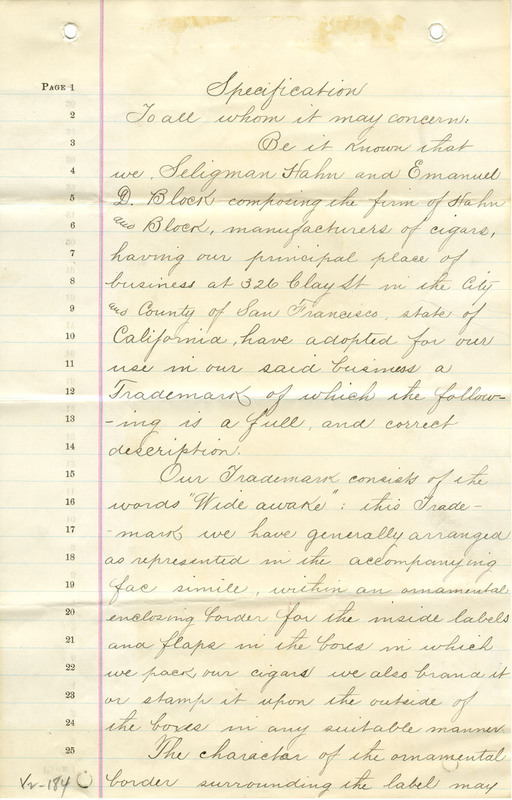 Specification
PAGE 1
2 To all whom it may concern:
3 Be it known that
4 we, Seligman Hahn and Emanuel
5 D. Block composing the firm of Hahn
6 and Block, manufacturers of cigars,
7 having our principal place of
8 business at 326 Clay St in the City
9 and County of San Francisco, state of
10 California, have adopted for our
11 use in our said business a
12 Trademark of which the follow-
13 -ing is a full, and correct
14 description.
15 Our Trademark consists of the
16 words "Wide awake": this Trade-
17 -mark we have generally arranged
18 as represented in the accompanying
19 fac simile, within an ornamental
20 enclosing border for the inside labels
21 and flaps in the boxes in which
22 we pack our cigars we also brand it
23 or stamp it upon the outside of
24 the boxes in any suitable manner
25 The character of the ornamental
border surrounding the label may